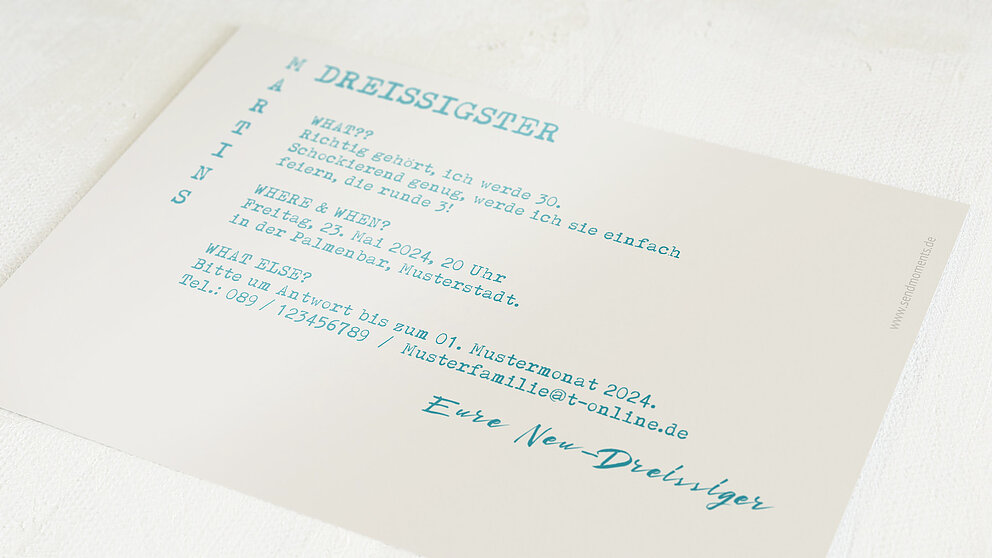 MARTINS
DREISSIGSTER
WHAT??
Richtig gehört, ich werde 30.
Schockierend genug, werde ich sie einfach
feiern, die runde 3!
WHERE & WHEN?
Freitag, 23. Mai 2024, 20 Uhr
in der Palmenbar, Musterstadt.
WHAT ELSE?
Bitte um Antwort bis zum 01. Mustermonat 2024.
Tel.: 089 / 123456789 / Musterfamilie@t-online.de
Eure Neu-Dreissiger
www.sendmoments.de